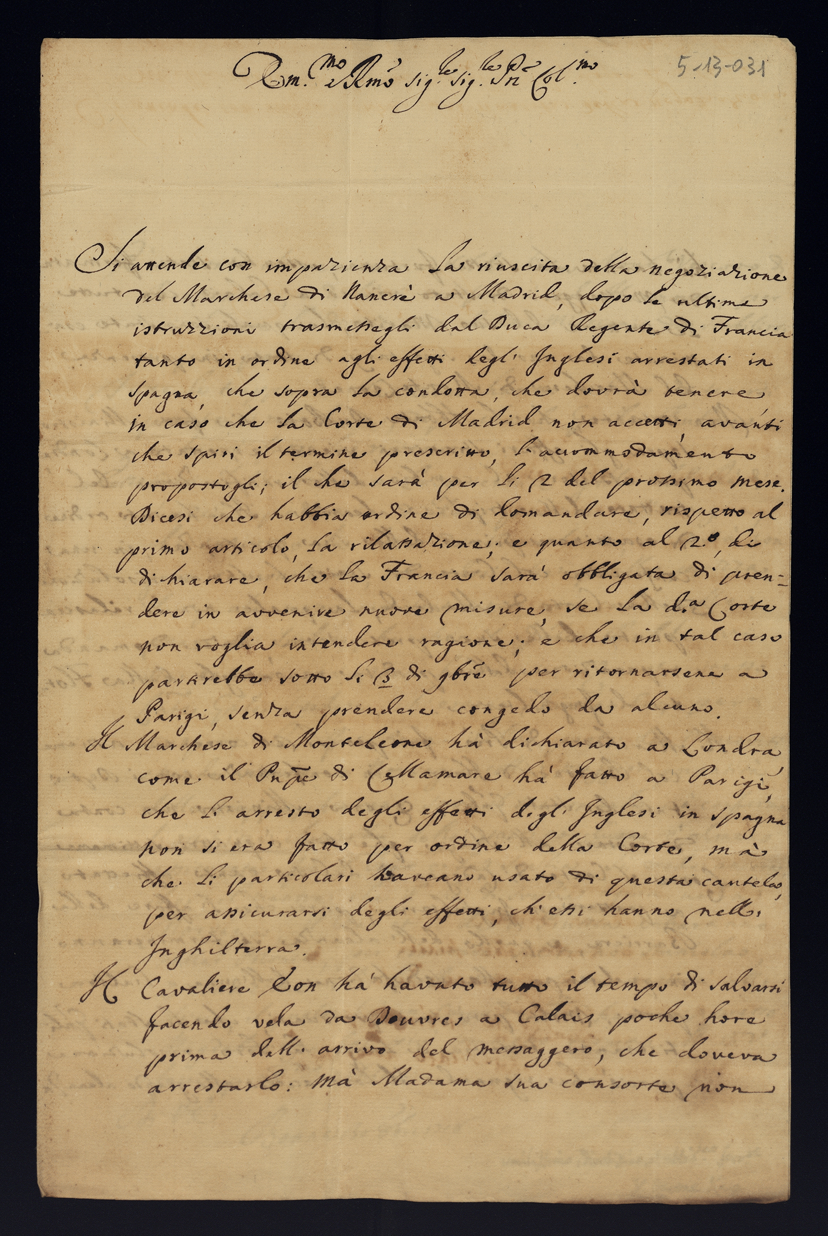 Em.mo e Rmo Sig.re Sig.re Prn Col.mo
5-13-031
Si attende con impazienza la riuscita della negoziazione
del Marchese di Nancrè a Madrid, dopo le ultime
istruzzioni trasmessegli dal Duca Regente di Francia
tanto in ordine agli effetti degl' Inglesi arrestati in
Spagna, che sopra la condotta, che dovrà tenere,
in caso che la Corte di Madrid non accetti, avanti
che spiri il termine prescritto, l'accommodamento
propostogli; il che sarà per li 2 del prossimo mese.
Dicesi che habbia ordine di domandare, rispetto al
primo articolo, la rilassazione; e quanto al 2.o, di
dichiarare, che la Francia sarà obbligata di pren-
dere in avvenire nuove misure, se la d.a Corte
non voglia intendere ragione; e che in tal caso
partirebbe sotto li 3 di 9bre per ritornarsene a
Parigi, senza prendere congedo da alcuno.
Il Marchese di Monteleone hà dichiarato a Londra,
come il Prnpe di Cellamare hà fatto a Parigi,
che l'arresto degli effetti degl' Inglesi in Spagna
non si era fatto per ordine della Corte, mà
che li particolari haveano usato di questa cautela,
per assicurarsi degli effetti, ch'essi hanno nell'
Inghilterra.
Il Cavaliere Eon hà havuto tutto il tempo di salvarsi
facendo vela da Douvres a Calais poche hore
prima dell' arrivo del messaggero, che doveva
arrestarlo: mà Madama sua consorte non